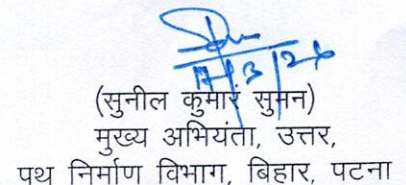 17/3/26
(सुनील कुमार सुमन)
मुख्य अभियंता, उत्तर,
पथ निर्माण विभाग, बिहार, पटना